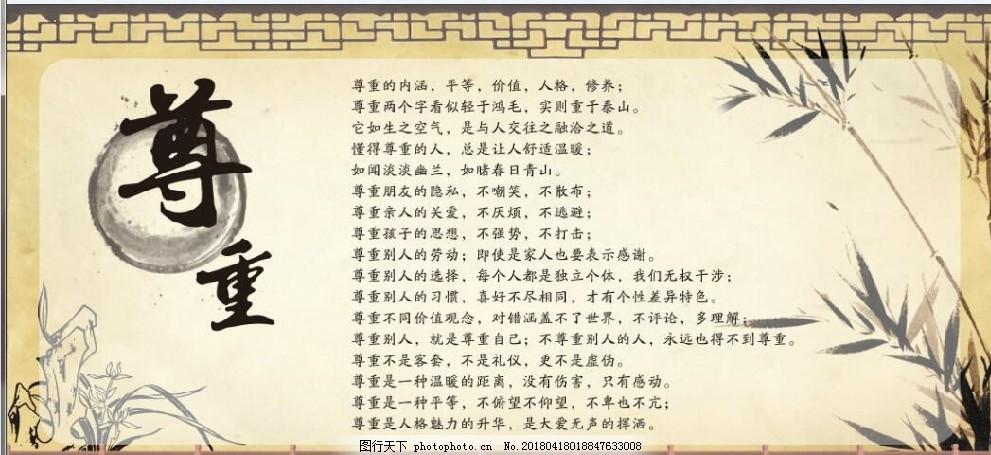 尊重
尊重的内涵，平等，价值，人格，修养；
尊重两个字看似轻于鸿毛，实则重于泰山。
它如生之空气，是与人交往之融洽之道。
懂得尊重的人，总是让人舒适温暖；
如闻淡淡幽兰，如睹春日青山。
尊重朋友的隐私，不嘲笑，不散布；
尊重亲人的关爱，不厌烦，不逃避；
尊重孩子的思想，不强势，不打击；
尊重别人的劳动；即使是家人也要表示感谢。
尊重别人的选择，每个人都是独立个体，我们无权干涉；
尊重别人的习惯，喜好不尽相同，才有个性差异特色。
尊重不同价值观念，对错涵盖不了世界，不评论，多理解；
尊重别人，就是尊重自己；不尊重别人的人，永远也得不到尊重。
尊重不是客套，不是礼仪，更不是虚伪。
尊重是一种温暖的距离，没有伤害，只有感动。
尊重是一种平等，不俯望不仰望，不卑也不亢；
尊重是人格魅力的升华，是大爱无声的挥洒。
图行天下 photophoto.cn No.20180418018847633008